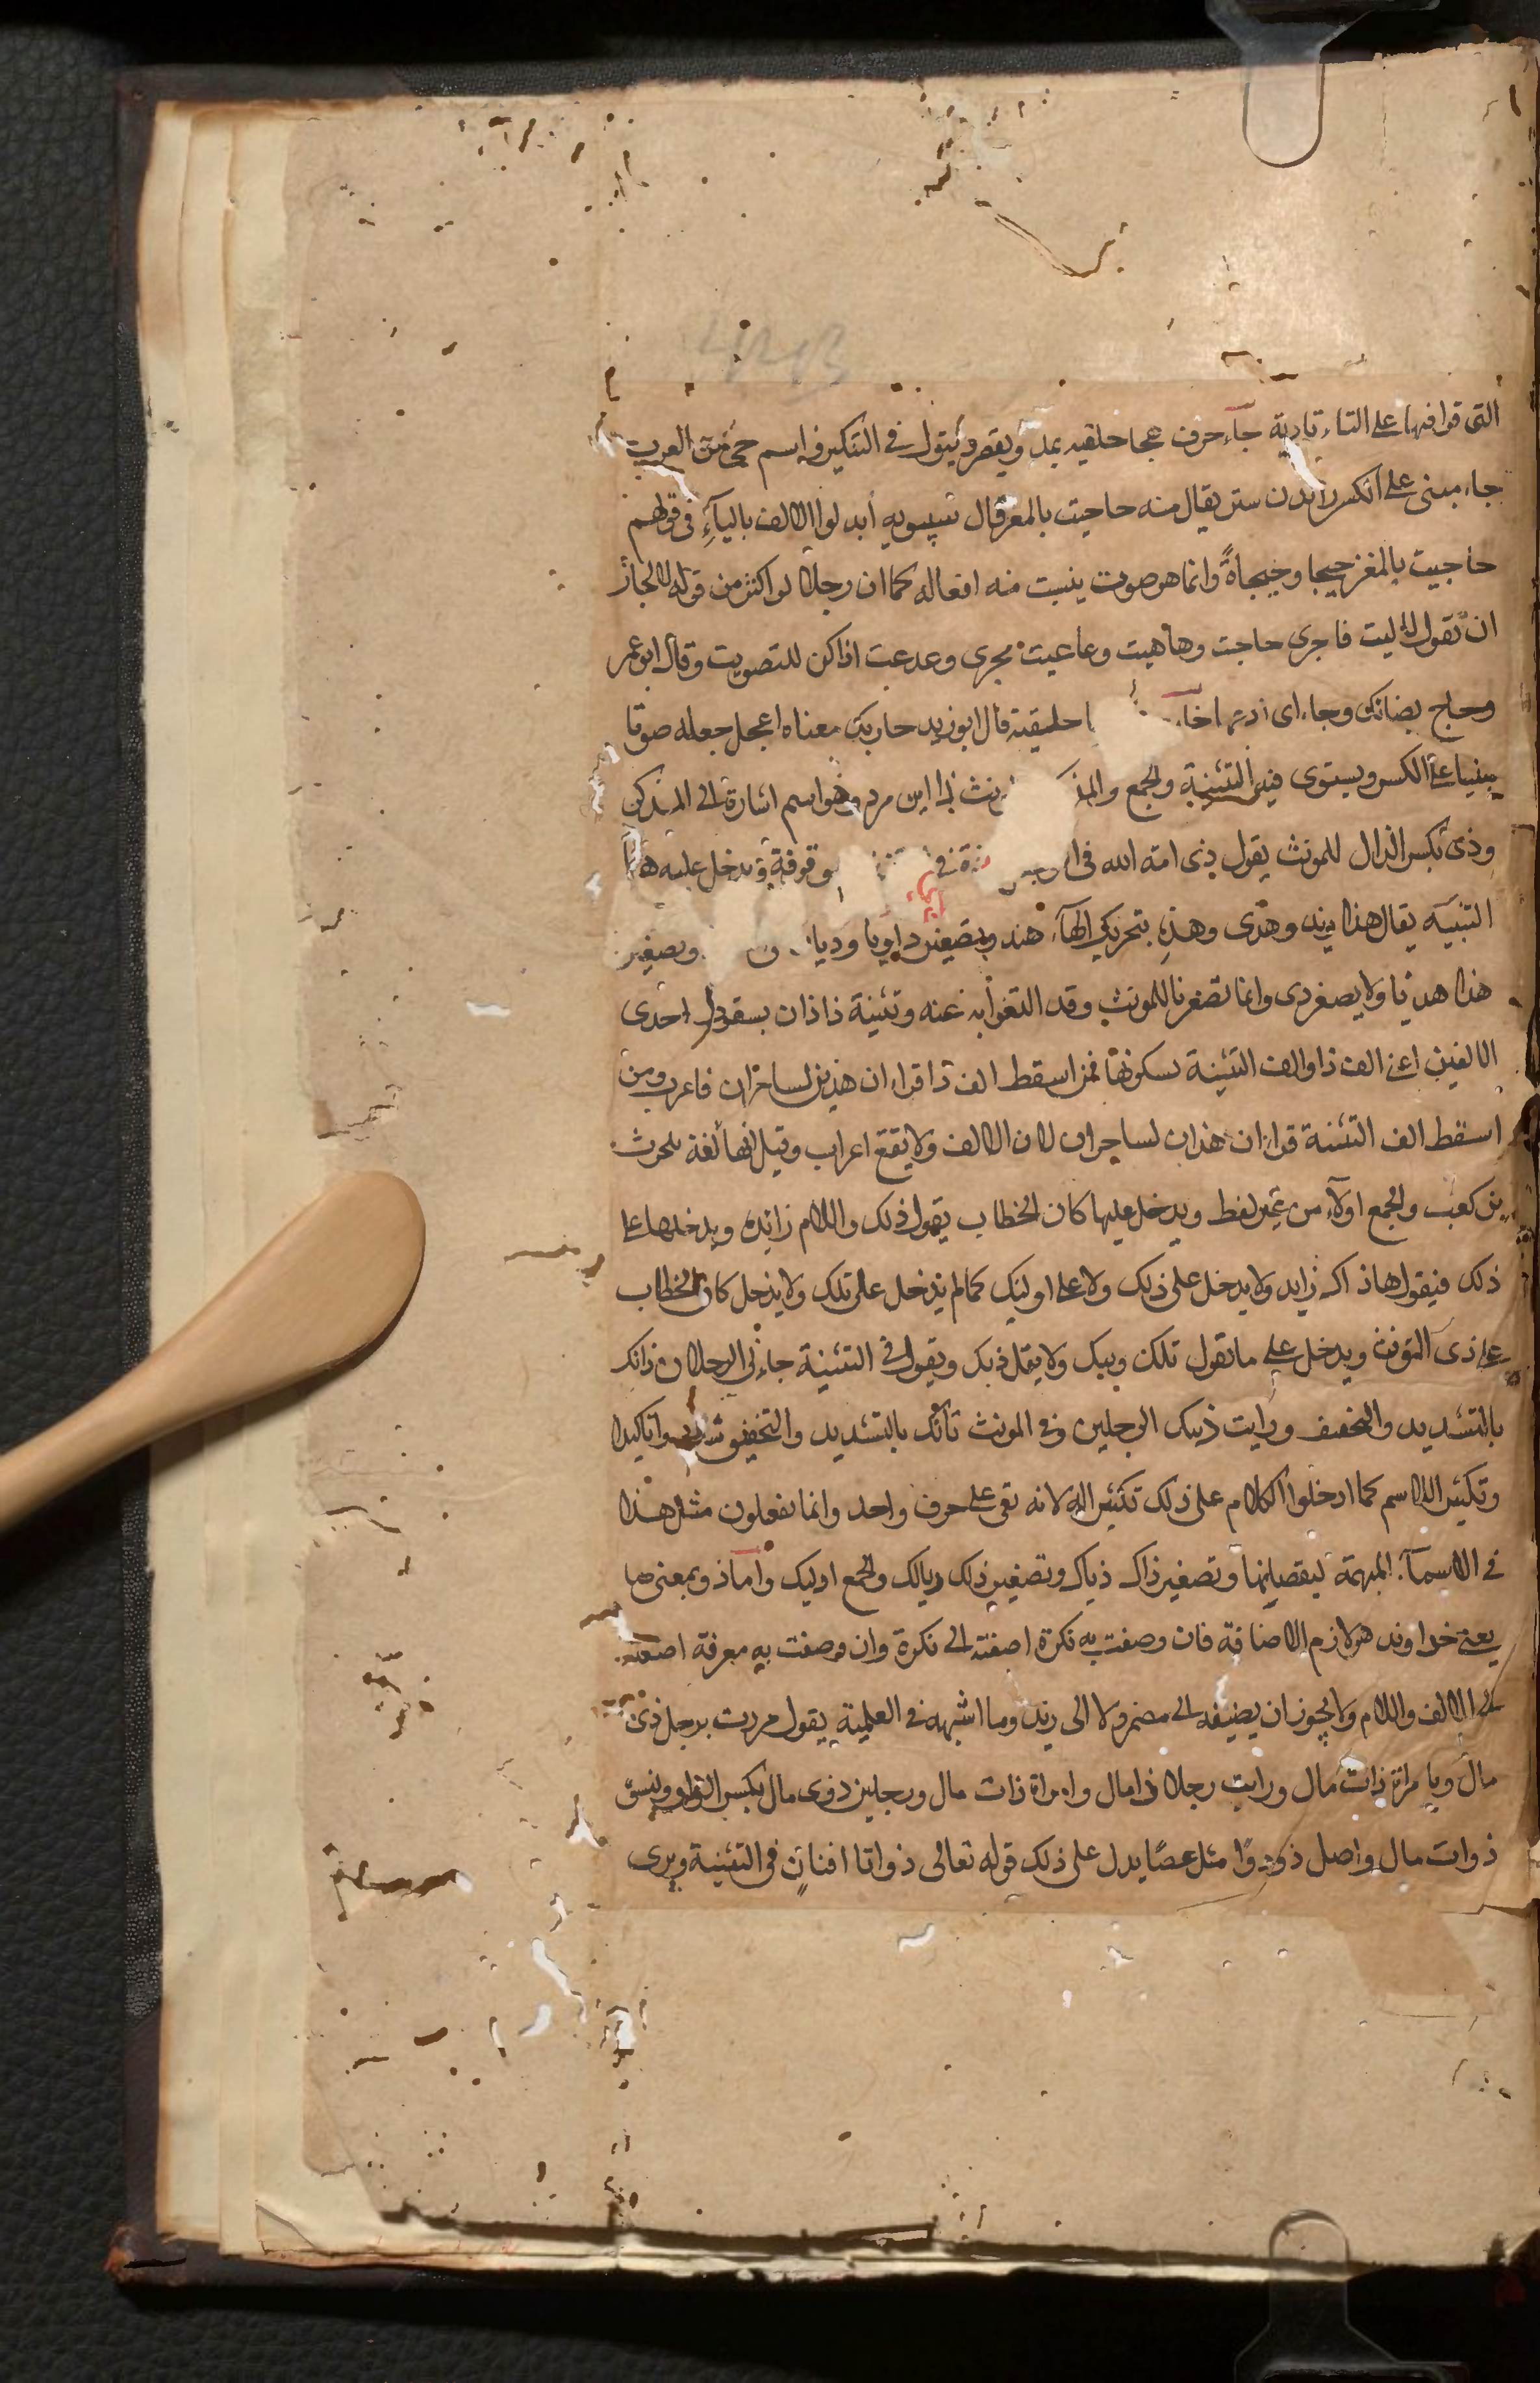 التى قوافيها على التاء تاديه جآء حرف هجا حلقيه يمد ويقصر ويقول فى التنكير واسم حى من العرب
جاء مبنى على الكسر زيدن ستر يقال منه حاحيت بالمعز قال سيبويه أبدلوا الالف بالياءِ فى قولهم
حاحيت بالمغز حيحا وحيحاةً وانما هو صوت ينبت منه افعاله كما ان رجلا لو اكثر من قوله لا لجاز
ان تقول لاليت فاجرى حاجت وهاهيت وعاعيت مجرى وعدعت اذا كن للتصويت وقال ابو عمر
وحاج بضانك وجاء اى ادعها خاء حلقية قال ابو زيد خاءبك معناه اعجل جعله صوتا
مبنيا على الكسر ويستوى فيه التثنية والجمع والمذ ونث ذا اين مرد وهو اسم اشارة الى المذكر
وذى بكسر الذال للمونث يقول ذى امة الله فى ا موقوفة وتدخل عليه ها
التنبيه يقال هذا زيد وهذى وهذهِ بتحريك الهآء هند وتصغير ذا ويا وديا ن وتصغير
هذا هديا ولا يصغر دى وانما تصغر تا للمونث وقد التغوا به عنه وتثنية ذا ذان بسقوط احدى
الالفين اعنى الف ذا والف التثنية لسكونها فمن اسقط الف ذا قراء ان هذين لساحران فاعرب ومن
اسقط الف التثنية قراء ان هذان لساحران لان الالف ولا يقع اعراب وقيل انها لغة بلحرث
بن كعب والجمع اولآء من غير لفظ ويدخل عليها كان الخطاب يقول ذلك واللام زايده ويدخلها على
ذلك فيقول هاذاك زايد ولا يدخل على ذلك ولا على اوليك كما لم يدخل على تلك ولا يدخل كان الخطاب
على ذى المونث ويدخل على ما تقول تلك وتيك ولا يقل ذيك ويقول فى التثنية جاءنى الرجلان ذانك
بالتشديد والتخفيف ورايت ذينك الرجلين وفى المونث تانك بالتشديد والتخفيف شددوا تاكيدا
وتكثير الاسم كما ادخلوا اللام على ذلك تكثير اله لانه بقى على حرف واحد وانما يفعلون مثل هذا
فى الاسمآء المبهمة لينقصانها وتصغير ذاك ذياك وتصغير ذلك ديالك والجمع اوليك وأما ذو بمعنى صا
يعنى خداوند هو لازم الاضافة فان وصفت به نكرة اضفته الى نكرة وان وصفت به معرفة اضفته
الى الالف واللام ولا يجوز ان يضيفه الى مضمر ولا الى زيد وما اشبهه فى العلمية يقول مررت برجل ذى
مال ويامراة ذات مال ورايت رجلا ذا مال وامراة ذات مال وبرجلين ذوى مال بكسر الواو ونسو
ذوات مال واصل ذو ذوًا مثل عصًا يدل على ذلك قوله تعالى ذواتا افنانٍ فى التثنية ويرى